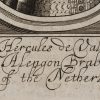 Hercules de Val
Alençon Brab
f the Nether